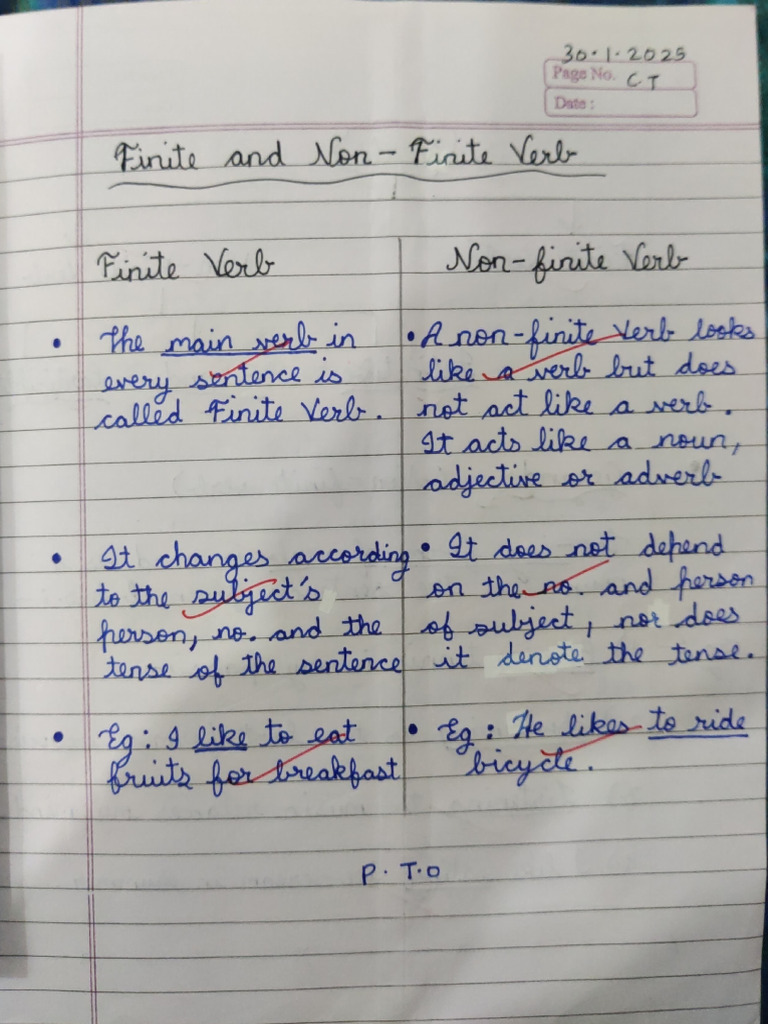 30.1.2025
Page No. CT
Date :
Finite and Non-Finite Verb
Finite Verb
The main verb in
every sentence is
called Finite Verb.
It changes according
to the subject's
person, no. and the
tense of the sentence
Eg: I like to eat
fruits for breakfast
Non-finite Verb
A non-finite verb looks
like a verb but does
not act like a verb.
It acts like a noun,
adjective or adverb
It does not depend
on the no. and person
of subject, nor does
it denote the tense.
Eg: He likes to ride
bicycle.
P.T.O